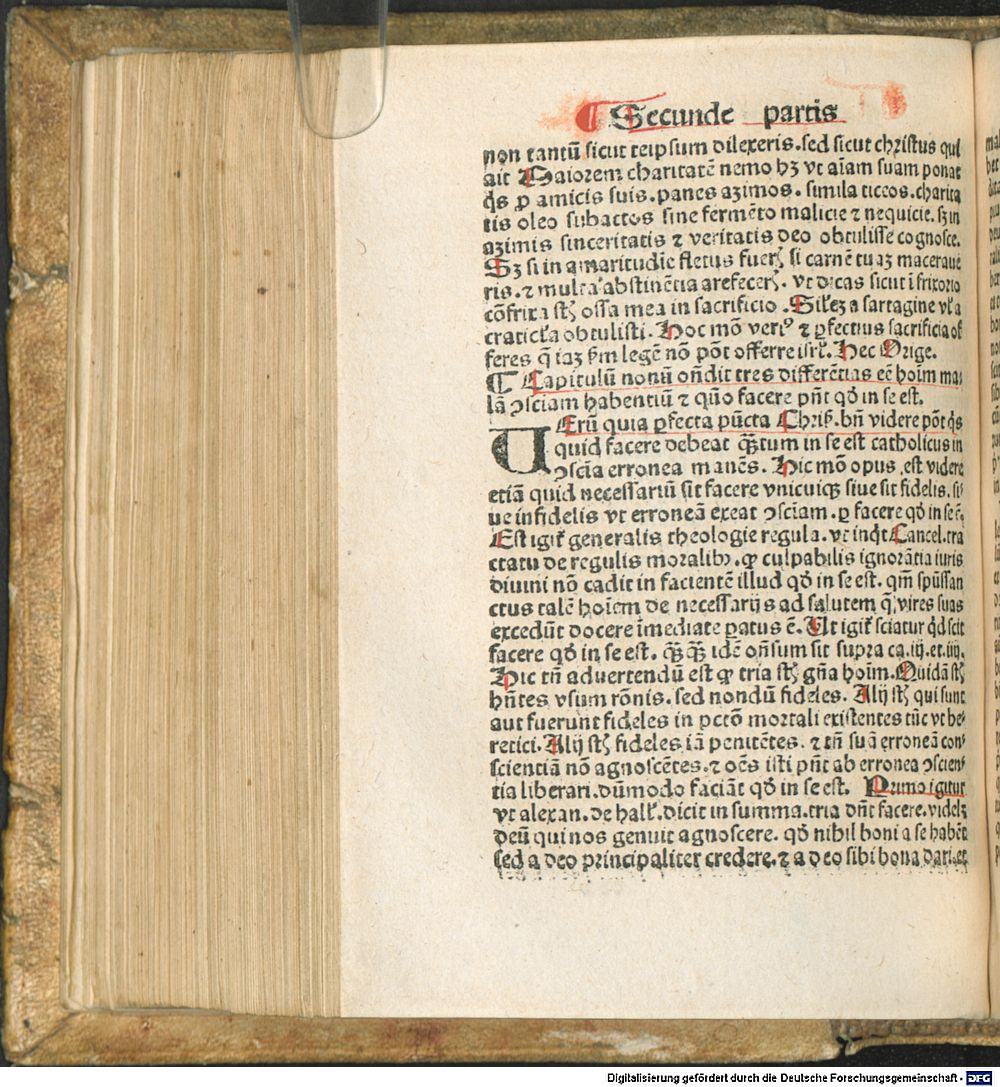 ¶ Secunde partis
non tantū sicut teipsum dilexeris. sed sicut christus qui
ait Maiorem charitatē nemo hꝫ vt aīam suam ponat
q̄s ꝓ amicis suis. panes azimos. simila ticeos. charita
tis oleo subactos sine fermēto malicie ⁊ nequicie. sꝫ in
azimis sinceritatis ⁊ veritatis deo obtulisse cognosce.
Sꝫ si in amaritudīe fletus fuerꝭ si carnē tuaꝫ maceraue
ris. ⁊ multa abstinētia arefecerꝭ. vt dicas sicut ī frixorio
cōfrixa st̄ ossa mea in sacrificio. Silꝫ a sartagine vl̓ a
craticl̓a obtulisti. Hoc mō veriꝰ ⁊ ꝑfectius sacrificia of
feres q̄ iaꝫ ẜm legē nō pōt offerre isrl̓. Hec Orige.
¶ Capitulū nonū on̄dit tres differētias eē hoīm ma
lā ↄsciam habentiū ⁊ quō facere pn̄t qd̓ in se est.
VErū quia ꝑfecta pūcta Chriſ. bn̄ videre pōt q̄s
quid facere debeat q̄ꝫtum in se est catholicus in
ↄsciā erronea manēs. Hic mō opus est videre
etiā quid necessariū sit facere vnicuiqꝫ siue sit fidelis. si
ue infidelis vt erroneā exeat ↄsciam. ꝑ facere qd̓ in se ē.
Est igit̓ generalis theologie regula. vt inq̇t Cancel. tra
ctatu de regulis moralibꝫ. ꝙ culpabilis ignorātia iuris
diuini nō cadit in facientē illud qd̓ in se est. qm̄ spūssan
ctus talē hoīem de necessarijs ad salutem q̄ vires suas
excedūt docere īmediate patus ē. Ut igit̓ sciatur q̇d sit
facere qd̓ in se est. q̄ꝫq̄ꝫ idē on̄sum sit supra ca. iij. et. iiij.
Hic tn̄ aduertendū est ꝙ tria st̄ gn̄a hoīm. Quidā st̄
hn̄tes vsum rōnis. sed nondū fideles. Alij st̄ qui sunt
aut fuerunt fideles in pctō mortali existentes tūc vt he
retici. Alij st̄ fideles iā penitētes. ⁊ tn̄ suā erroneā con
scientiā nō agnoscētes. ⁊ oēs isti pn̄t ab erronea ↄscien
tia liberari. dūmodo faciāt qd̓ in se est. Primo igitur
vt alexan. de hall̓. dicit in summa. tria dn̄t facere. videlꝫ
deū qui nos genuit agnoscere. qd̓ nihil boni a se habēt
sed a deo principaliter credere. ⁊ a deo sibi bona dari. et
Digitalisierung gefördert durch die Deutsche Forschungsgemeinschaft - DFG